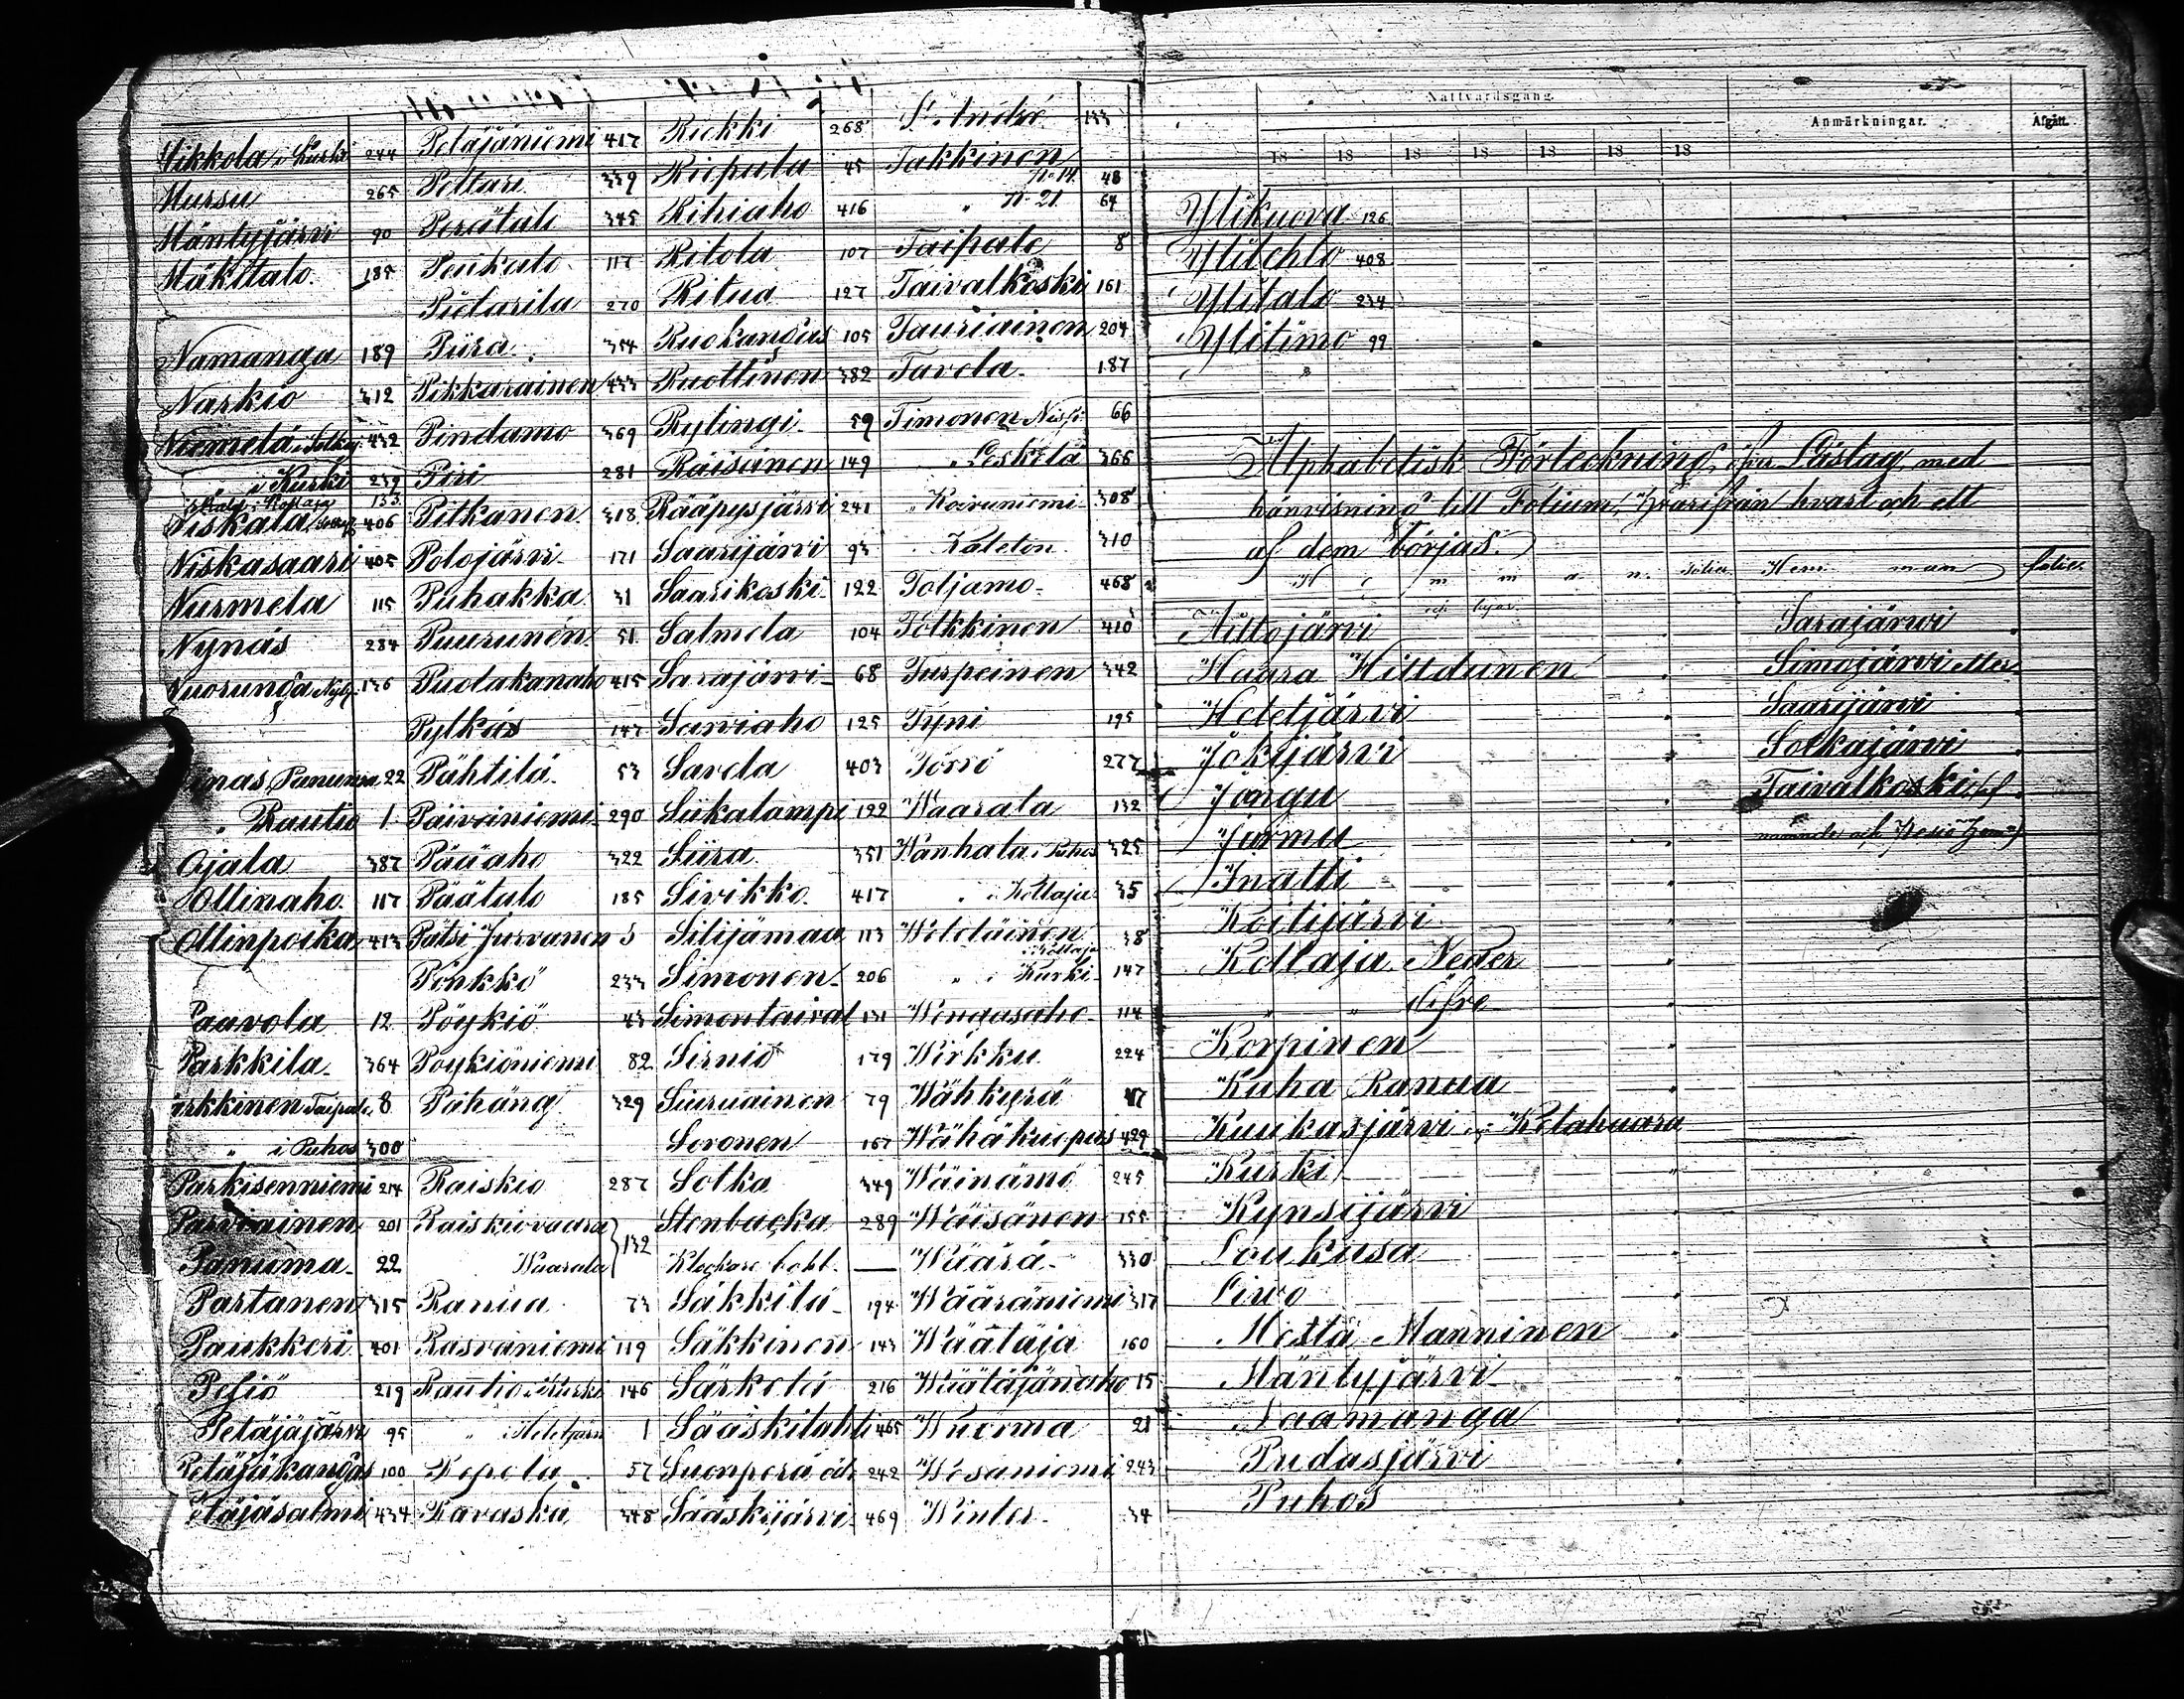 Mikkola i Kurki 244
Mursu 265
Mäntyjärvi 90
Mäkitalo 185
Namanga 189
Narkio 312
Niemelä 432
i Kurki 239
153
Niskala 406
Niskasaari 405
Nurmela 115
Nynäs 284
Nuorunga Nyby 136
Panuma 22
" Rautio 1
Ojala 387
Ollinaho 117
Ollinpoika 413
Paavola 12
Parkkila 364
Taipale 8
" i Puhos 300
Parkisenniemi 214
Parviainen 201
Panuma 22
Partanen 315
Paukkeri 401
Pesiö 219
Petäjäjärvi 95
Petäjäkangas 100
Petäjäsalmi 434
Petäjäniemi 417
Peltari 339
Perätalo 345
Peukalo 117
Pietarila 270
Piira 354
Pikkarainen 433
Pindamo 369
Piri 281
Pitkanen 318
Polojärvi 171
Puhakka 31
Puurunen 51
Pudakanaho 415
Pylkäs 147
Pähtilä 53
Päiväniemi 290
Pääaho 322
Päätalo 185
Pätsi Jurvanen 5
Pönkkö 233
Pöykiö 43
Pöykiöniemi 82
Pähäng 329
Raiskio 287
Raiskiovaara
Waarala } 132
Ranua 73
Rasvaniemi 119
Rautio i Kurki 146
" i Hetejärvi 1
Repola 57
Ravaska 348
Riekki 268
Riepula 45
Rihiaho 416
Ritola 107
Ritua 127
Ruokangas 105
Ruottinen 382
Rytingi 59
Räisänen 149
Rääpysjärvi 241
Saarijärvi 93
Saarikoski 122
Salmela 104
Sarajärvi 68
Sarviaho 125
Savela 403
Siikalampi 122
Siira 351
Sivikko 417
Silijämaa 113
Simonen 206
Simontaival 131
Sirniö 179
Siuruainen 79
Soronen 167
Sotka 349
Stenbacka 289
Klockare bohl —
Säkkilä 194
Säkkinen 143
Särkelä 216
Sääskilahti 465
Suonperä 242
Sääskijärvi 469
S. Andre 133
Takkinen No 14 48
" No 21 64
Taipale 8
Taivalkoski 161
Tauriainen 204
Tavela 187
Timonen 66
" Leskelä 366
" Koiruniemi 308
" 310
Toljamo 468
Tolkkinen 410
Turpeinen 342
Tyni 195
Törrö 277
Waarala 132
Wanhala i Puhos 325
" i Kollaja 35
Weteläinen i Kollaja 38
" i Kurki 147
Wengasaho 114
Wirkku 224
Wähkyrä 47
Wähäkuopus 429
Wäinämö 245
Wäisänen 155
Määrä 330
Wääräniemi 317
Wäätäjä 160
Wäätäjänaho 15
Wuorma 21
Wesaniemi 243
Winter 34
Nattvardsgång.
Anmärkningar.
Afgått.
18 18 18 18 18 18 18
Ylikuova 126
Yliichto 408
Ylitalo 234
Ylitimo 99
Alphabetisk Förteckning, öfver Lästag, med
hänvisning till Folium, hvarifrån hvart och ett
af dem börjas.
Hemman och byar. Folia. Hemman folia
Aittojärvi Sarajärwi
Haara Hiltdunen Simojärvi
Hetejärvi Saarijärvi
Jokijärvi Sotkajärvi
Jongu Taivalkoski
Jurmu
Inatti
Koitijärvi
Kollaja Neder
" " Öfre
Korpinen
Kuha Ranua
Kuukasjärvi och Kelahuara
Kurki
Kynsijärvi
Loukusa
Livo
Metsä Manninen
Mäntyjärvi
Naamanga
Pudasjärvi
Puhos